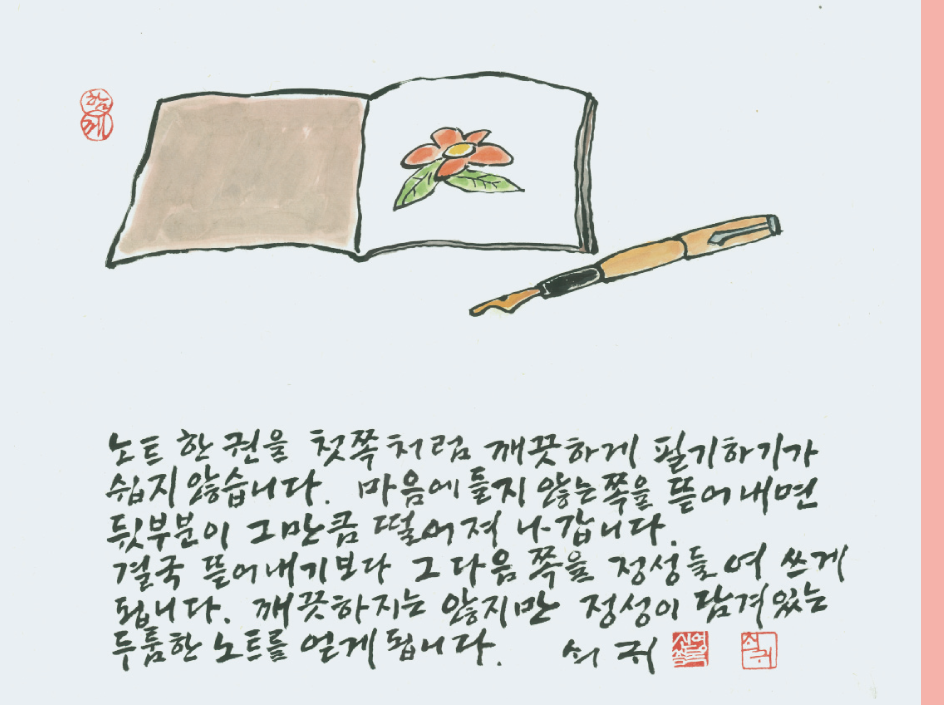 함께
노트 한 권을 첫쪽처럼 깨끗하게 필기하기가
쉽지 않습니다. 마음에 들지 않는 쪽을 뜯어내면
뒷부분이 그만큼 떨어져 나갑니다.
결국 뜯어내기보다 그 다음 쪽을 정성들여 쓰게
됩니다. 깨끗하지는 않지만 정성이 담겨있는
두툼한 노트를 얻게 됩니다. 쇠귀
쇠귀